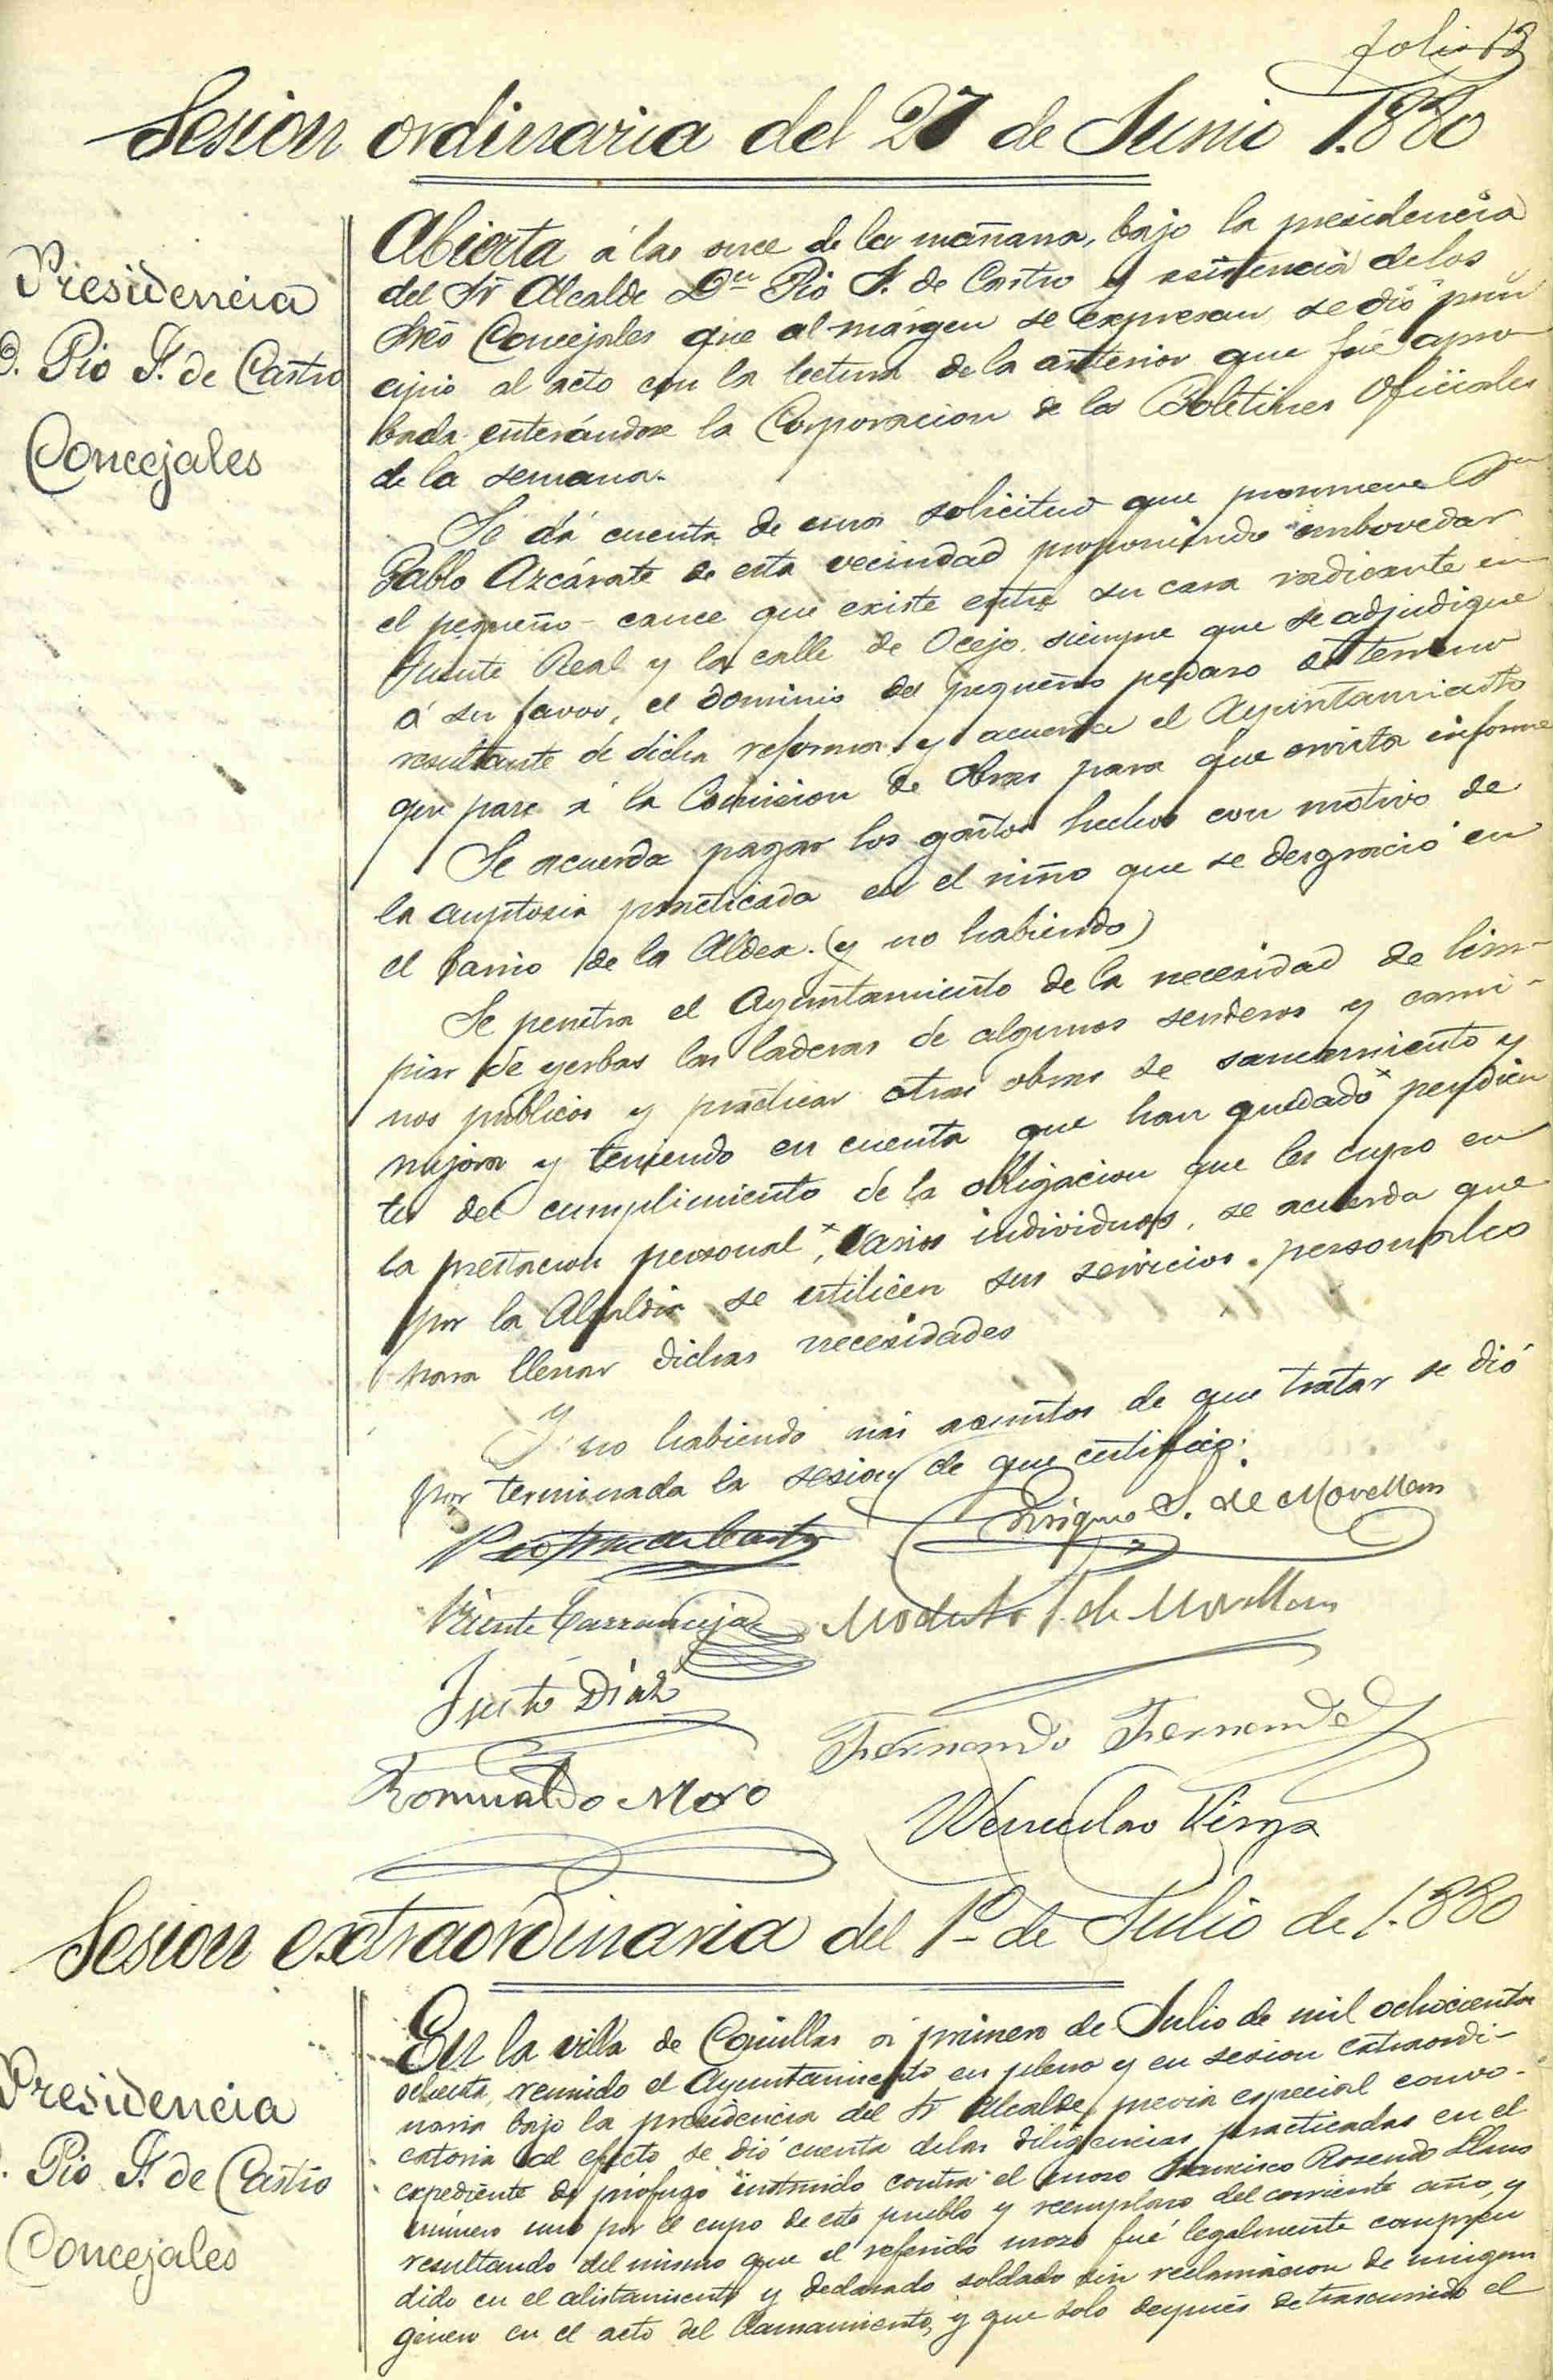 folio 13
Sesion ordinaria del 27 de Junio 1.880
Presidencia
D. Pio F. de Castro
Concejales
Abierta á las once de la mañana, bajo la presidencia
del Sr Alcalde Dn Pio F. de Castro y asistencia de los
Sres Concejales que al márgen se expresan se dió prin
cipio al acto con la lectura de la anterior que fué apro-
bada enterándose la Corporacion de los Boletines Oficiales
de la semana.
Se dá cuenta de una solicitud que promueve Dn
Pablo Azcárate de esta vecindad proponiendo embovedar
el pequeño cauce que existe entre su casa radicante en
Fuente Real y la calle de Ocejo, siempre que se adjudique
á su favor, el dominio del pequeño pedazo de terreno
resultante de dicha reforma y acuerda el Ayuntamiento
que pase á la Comision de Obras para que emita informe
Se acuerda pagar los gastos hechos con motivo de
la auptosia practicada en el niño que se desgració en
el barrio de la Aldea. (y no habiendo)
Se penetra el Ayuntamiento de la necesidad de lim-
piar de yerbas las laderas de algunos senderos y cami-
nos publicos y practicar otras obras de saneamiento y
mejora y teniendo en cuenta que han quedado pendien
tes del cumplimiento de la obligacion que les cupo en
la prestacion personal, varios individuos, se acuerda que
por la Alcaldia se utilicen sus servicios personales
para llenar dichas necesidades
Y no habiendo más asuntos de que tratar se dió
por terminada la sesion de que certifico.
Enrique S. de Movellan
Vicente Carranceja
Modesto S. de Movellan
Justo Díaz
Fernando Fernandez
Romualdo Moro
Wenceslao Vierna
Sesion extraordinaria del 1º de Julio de 1.880
Presidencia
D. Pio F. de Castro
Concejales
En la villa de Comillas á primero de Julio de mil ochocientos
ochenta, reunido el Ayuntamiento en pleno y en sesion extraordi-
naria bajo la presidencia del Sr Alcalde, previa especial convo-
catoria al efecto se dió cuenta de las diligencias practicadas en el
expediente de prófugo instruido contra el mozo Francisco Rosendo Llano
número uno por el cupo de este pueblo y reemplazo del corriente año, y
resultando del mismo que el referido mozo fué legalmente compren
dido en el alistamiento y declarado soldado sin reclamacion de ningun
género en el acto del llamamiento, y que solo después de trascurrido el